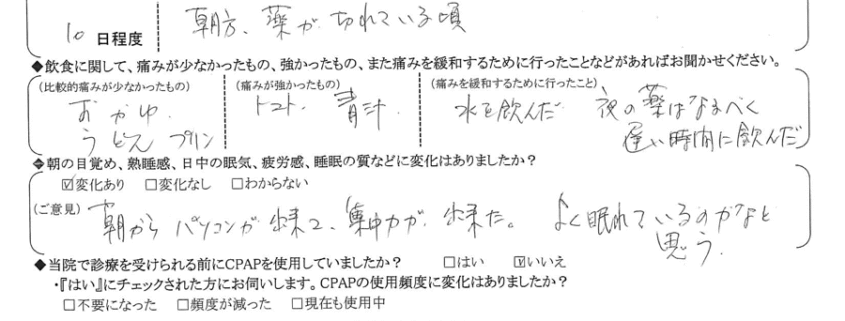 10 日程度 朝方、薬が切れている頃
◆飲食に関して、痛みが少なかったもの、強かったもの、また痛みを緩和するために行ったことなどがあればお聞かせください。
(比較的痛みが少なかったもの) (痛みが強かったもの) (痛みを緩和するために行ったこと)
おかゆ. トマト. 青汁. 水を飲んだ 夜の薬はなるべく
うどん プリン 遅い時間に飲んだ
◆朝の目覚め、熟睡感、日中の眠気、疲労感、睡眠の質などに変化はありましたか?
☑変化あり □変化なし □わからない
(ご意見) 朝からパソコンが出来て、集中力が出来た。よく眠れているのかなと
思う.
◆当院で診療を受けられる前にCPAPを使用していましたか? □はい ☑いいえ
・『はい』にチェックされた方にお伺いします。CPAPの使用頻度に変化はありましたか?
□不要になった □頻度が減った □現在も使用中